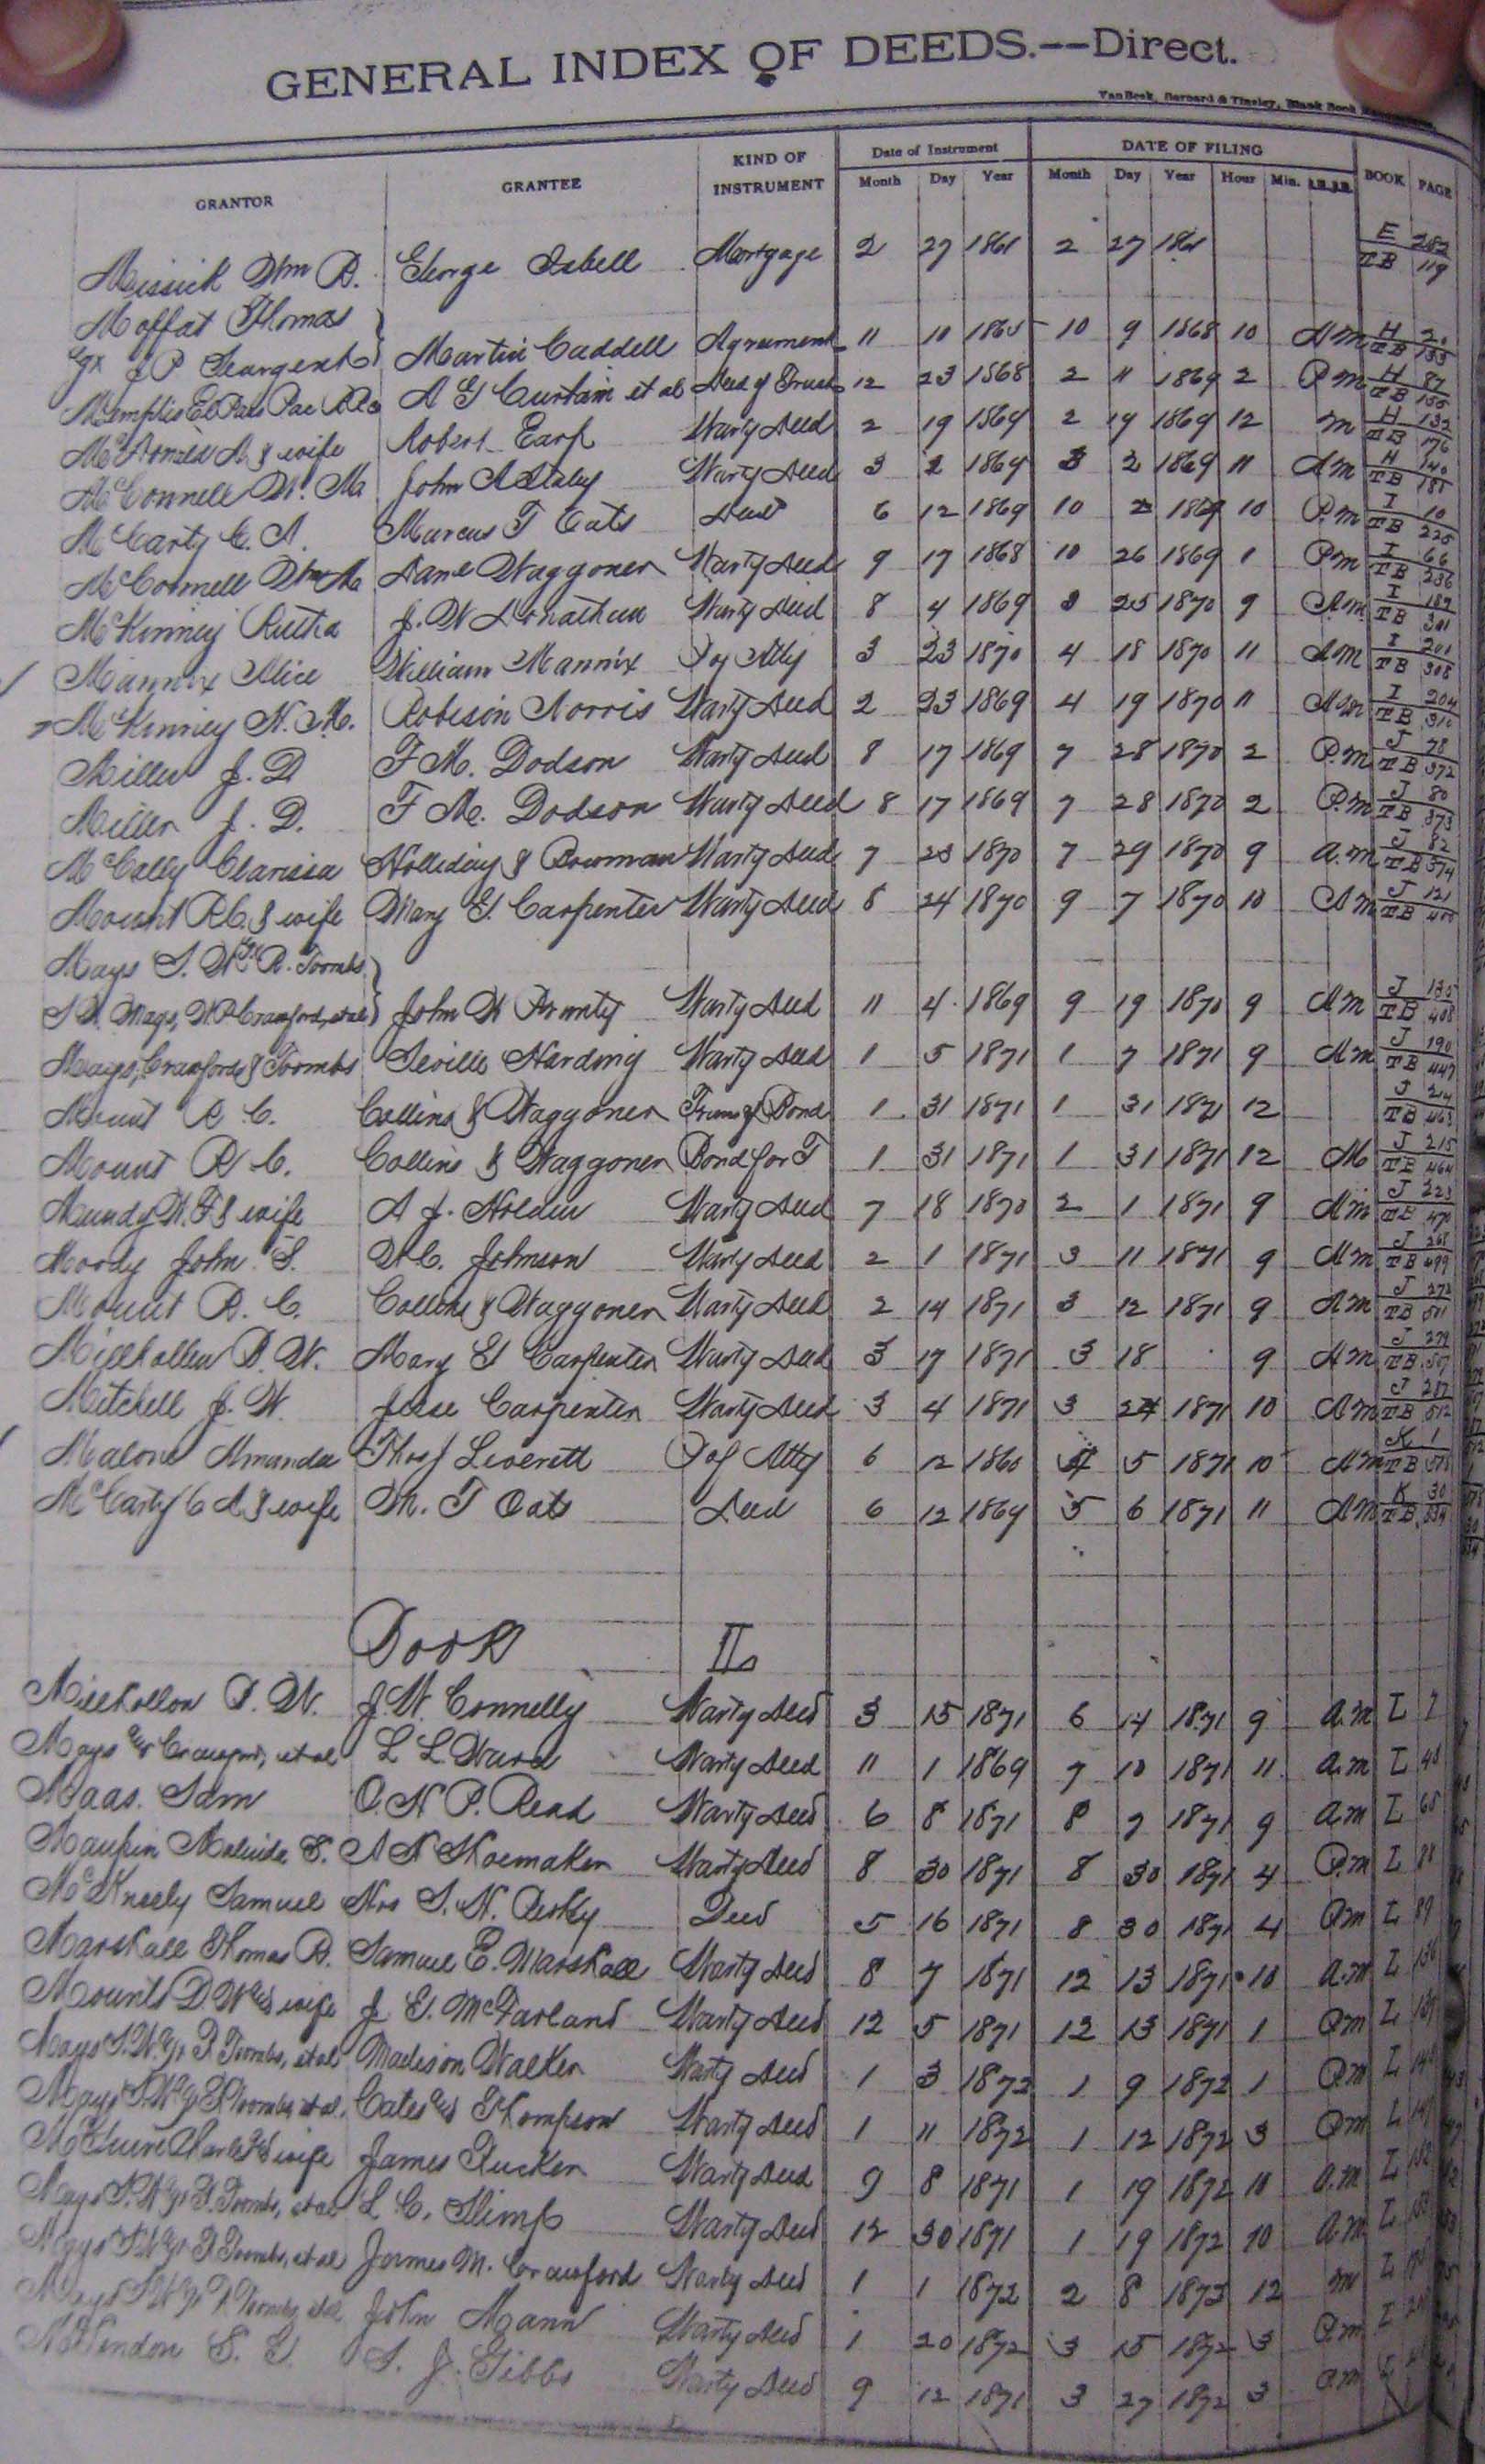 GENERAL INDEX OF DEEDS.--Direct.
VanBeek, Barnard & Tinsley, Blank Book
GRANTOR GRANTEE KIND OF INSTRUMENT Date of Instrument DATE OF FILING BOOK PAGE
Month Day Year Month Day Year Hour Min.
Missick Wm B. George Isbell Mortgage 2 27 1861 2 27 1861 E 282 TB 119
Moffat Thomas
J P Seargent Martin Caddell Agreement 11 10 1865 10 9 1868 10 Am H 20 TB 133
Memphis El Paso Pac RR Co A G Curtain et al Deed of Trust 12 23 1868 2 11 1869 2 P.m H 87 TB
McDonald A. & wife Robert Earp Warty Deed 2 19 1869 2 19 1869 12 m H 132 TB 176
McConnell W. M. John A Staley Warty Deed 3 2 1869 3 2 1869 11 Am H 140 TB 181
McCarty C. A. Marcus T Oats Deed 6 12 1869 10 2 1869 10 P.m I 10 TB 225
McConnell Wm M Dan Waggoner Warty Deed 9 17 1868 10 26 1869 1 Pm I 66 TB 256
McKinney Rutha J. W Warty Deed 8 4 1869 3 25 1870 9 A.m. I 189 TB 301
Mannix Alice William Mannix P of Atty 3 23 1870 4 18 1870 11 Am I 201 TB 308
McKinney N. M. Robison Norris Warty Deed 2 23 1869 4 19 1870 11 Am I 204 TB 310
Miller J. D F M. Dodson Warty Deed 8 17 1869 7 28 1870 2 P.m J 78 TB 372
Miller J. D. F M. Dodson Warty Deed 8 17 1869 7 28 1870 2 P.m J 80 TB 373
McCally Clarissa Holliday & Bowman Warty Deed 7 23 1870 7 29 1870 9 a.m J 82 TB 374
Mount R C. & wife Mary E. Carpenter Warty Deed 8 24 1870 9 7 1870 10 Am J 121 TB 400
Mays S. W. & R. Toombs
S W. Mays, W. P. Crawford, et al John W Prunty Warty Deed 11 4 1869 9 19 1870 9 Am J 135 TB 408
Mays, Crawford & Toombs Seville Harding Warty Deed 1 5 1871 1 7 1871 9 Am J 190 TB 447
Mount R. C. Collins & Waggoner Transf Bond 1 31 1871 1 31 1871 12 J 214 TB 463
Mount R C. Collins & Waggoner Bond for T 1 31 1871 1 31 1871 12 M J 215 TB 464
Mundy W. F & wife A J. Holden Warty Deed 7 18 1870 2 1 1871 9 Am J 223 TB 470
Moody John S. W C. Johnson Warty Deed 2 1 1871 3 11 1871 9 Am J 268 TB 499
Mount R. C. Collins & Waggoner Warty Deed 2 14 1871 3 12 1871 9 Am J 272 TB 501
Millhollen D. W. Mary E Carpenter Warty Deed 3 17 1871 3 18 9 Am J 279 TB 507
Mitchell J. W. Jesse Carpenter Warty Deed 3 4 1871 3 24 1871 10 Am J 287 TB 512
Malone Amanda Thos J Leverett P of Atty 6 12 1860 5 1871 10 Am K 1 TB
McCarty C A & wife M. T Oats Deed 6 12 1869 5 6 1871 11 Am K 30 TB 534
Book L
Millhollon D. W. J. W. Connelly Warty Deed 3 15 1871 6 14 1871 9 a.m L 7
Mays & Crawford, et al L L Ward Warty Deed 11 1 1869 7 10 1871 11 a.m L 48
Maas Sam O. H P. Read Warty Deed 6 8 1871 8 7 1871 9 a.m L 65
Maupin Malinda E. A N Shoemaker Warty Deed 8 30 1871 8 30 1871 4 P.m L 88
McKneely Samuel Mrs S. N. Deed 5 16 1871 8 30 1871 4 Pm L 89
Marshall Thomas R. Samuel E. Marshall Warty Deed 8 7 1871 12 13 1871 10 a.m L 136
Mounts D. W & wife J E. McFarland Warty Deed 12 5 1871 12 13 1871 1 Pm L 137
Mays S. W. & R Toombs, et al Madison Walker Warty Deed 1 3 1872 1 9 1872 1 P.m L
Mays S. W. & R Toombs, et al. Cates & Thompson Warty Deed 1 11 1872 1 12 1872 3 Pm L 147
McGuire Charles & wife James Rucker Warty Deed 9 8 1871 1 19 1872 10 a.m L 152
Mays S. W. & R. Toombs, et al L C. Slimp Warty Deed 12 30 1871 1 19 1872 10 a.m L 153
Mays S. W. & R. Toombs, et al James M. Crawford Warty Deed 1 1 1872 2 8 1873 12 m L
Mays S W & R Toombs et al John Mann Warty Deed 1 20 1872 3 15 1872 3 P.m L
E. S. J. Gibbs Warty Deed 9 12 1871 3 27 1872 3 P.m L